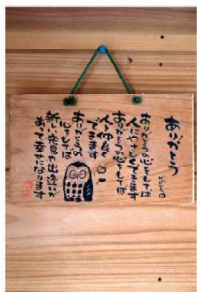 ありがとう
ありがとうの心をもてば
人にやさしくできます
ありがとうの心をもてば
人と仲良く
できます
ありがとうの
心をもてば
新しい発見や出逢いが
あって幸せになります